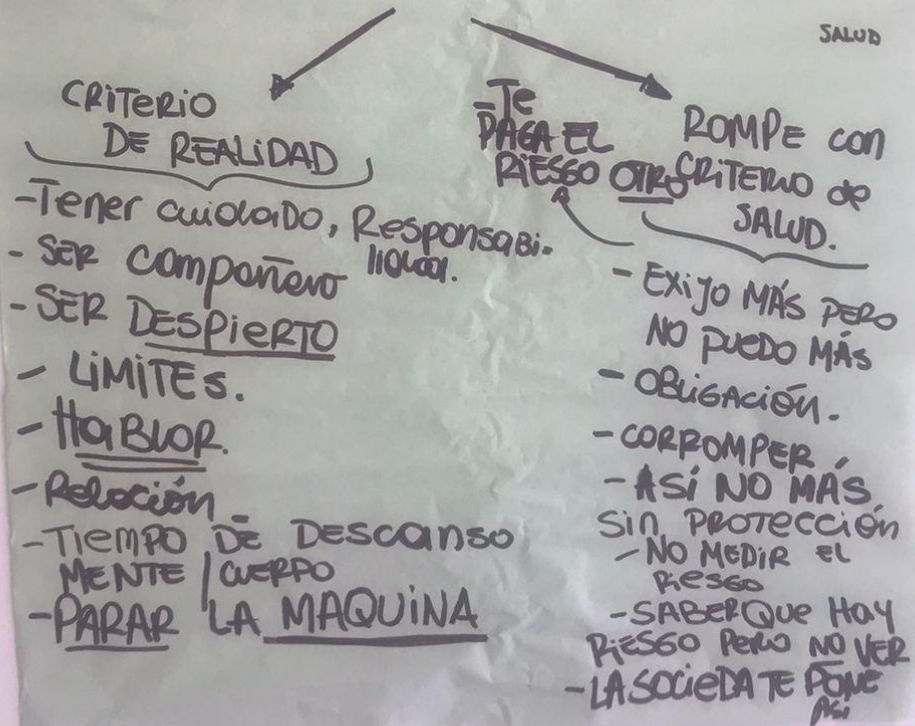 SALUD
CRiTERiO
DE REALiDAD
-Tener cuidaDO, Responsabi-
lidad.
- SER compañero
- SER DESPiERTO
- LiMiTES.
- HABLAR.
- Relación
-TiEMPO DE DEScanso
MENTE / CUERPO
- PARAR LA MAQUiNA
-Te
PAGA EL
RiESGO OTRO
ROMPE con
CRiTERiO de
SALUD.
- EXiJO MÁS PERO
NO PUEDO MÁS
- OBLiGACiÓN.
- CORROMPER
- ASÍ NO MÁS
Sin PROTECCiÓN
- NO MEDiR EL
RiESGO
- SABER QUE HAY
RiESGO PERO NO VER
- LA SOCiEDA TE PONE
ASi